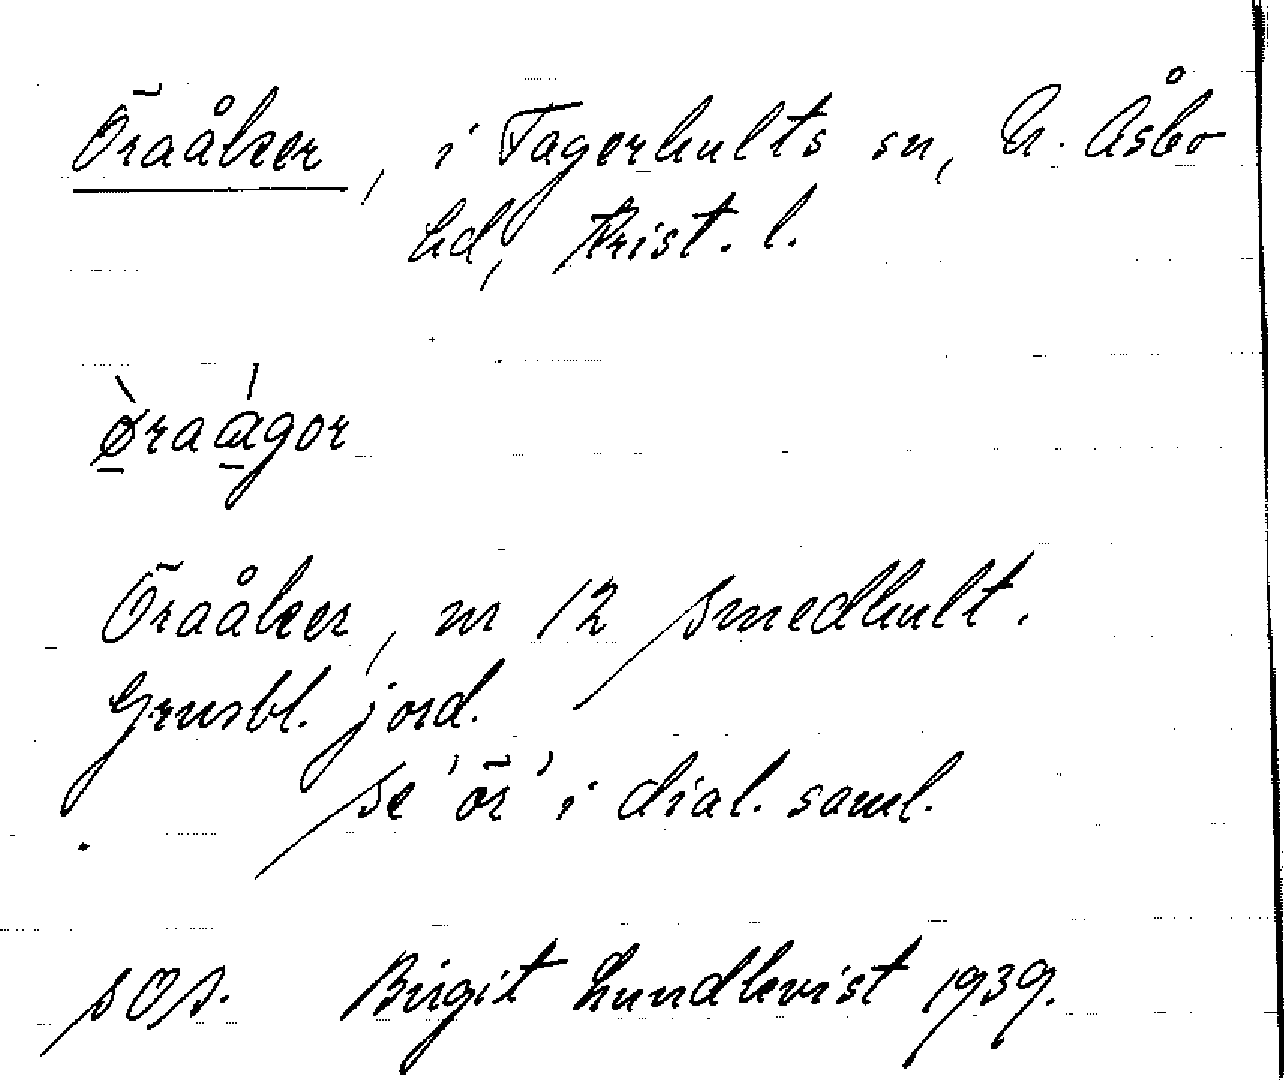 Öraåker, i Tågerhults sn, N. Åsbo
hd, Krist. l.
ø̀raágor
Öraåker, nr 12 Smedhult.
Grusbl. jord.
Se 'ör' i dial. saml.
SOS. Birgit Lundkvist 1939.